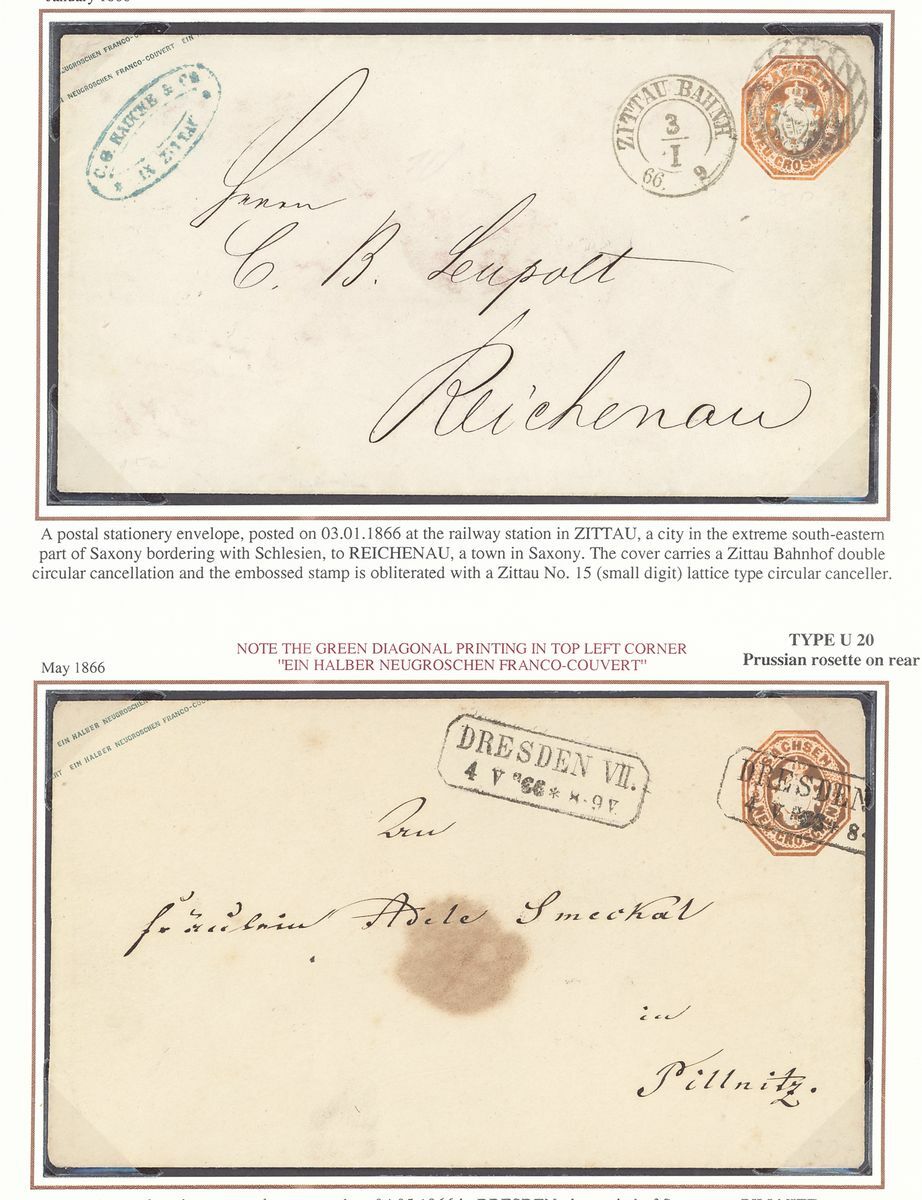 January 1866
NEUGROSCHEN FRANCO-COUVERT EIN
NEUGROSCHEN FRANCO-COUVERT EIN
C.G. & Co
IN ZITTAU
ZITTAU BAHNH
3
I
66. 9
SACHSEN
NEU-GROSCHEN
Herrn
C. B. Leupolt
Reichenau
A postal stationery envelope, posted on 03.01.1866 at the railway station in ZITTAU, a city in the extreme south-eastern
part of Saxony bordering with Schlesien, to REICHENAU, a town in Saxony. The cover carries a Zittau Bahnhof double
circular cancellation and the embossed stamp is obliterated with a Zittau No. 15 (small digit) lattice type circular canceller.
May 1866
NOTE THE GREEN DIAGONAL PRINTING IN TOP LEFT CORNER
"EIN HALBER NEUGROSCHEN FRANCO-COUVERT"
TYPE U 20
Prussian rosette on rear
EIN HALBER NEUGROSCHEN
RT EIN HALBER NEUGROSCHEN FRANCO-COU
DRESDEN VII.
4 V 66 * 8-9V
SACHSEN
NEU-GROSCHEN
DRESDEN
4 V 66 * 8-
An
Fräulein Adele Smeckal
in
Pillnitz.